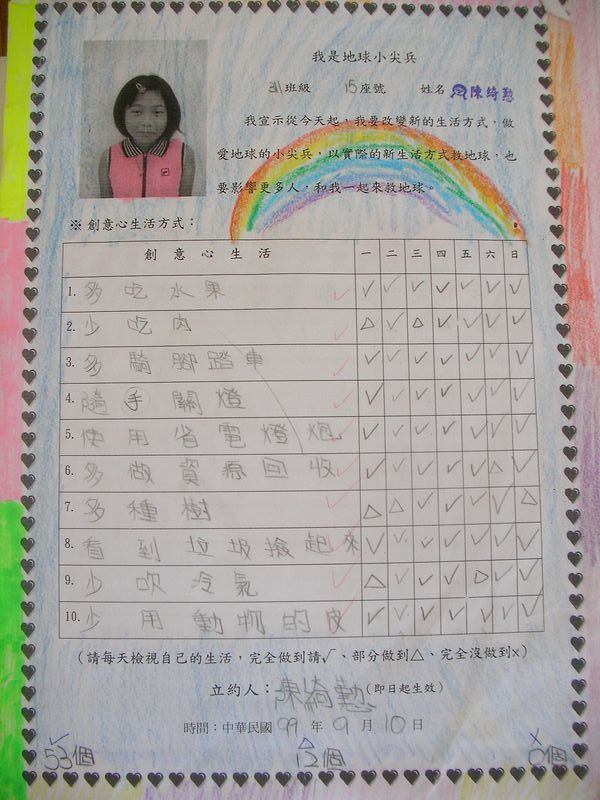 我是地球小尖兵
31班級 15座號 姓名 陳綺懃
我宣示從今天起，我要改變新的生活方式，做
愛地球的小尖兵，以實際的新生活方式救地球，也
要影響更多人，和我一起來救地球。
※ 創意心生活方式：
創意心生活 一 二 三 四 五 六 日
1. 多吃水果 ✓ ✓ ✓ ✓ ✓ ✓ ✓ ✓
2. 少吃肉 ✓ △ ✓ △ ✓ ✓ ✓ ✓
3. 多騎腳踏車 ✓ ✓ ✓ ✓ ✓ ✓ ✓ ✓
4. 隨手關燈 ✓ ✓ ✓ ✓ ✓ ✓ ✓ ✓
5. 使用省電燈炮 ✓ ✓ ✓ ✓ ✓ ✓ ✓ ✓
6. 多做資源回收 ✓ ✓ ✓ ✓ ✓ ✓ △ ✓
7. 多種樹 ✓ △ △ ✓ ✓ ✓ ✓ △
8. 看到垃圾撿起來 ✓ ✓ ✓ ✓ ✓ ✓ ✓
9. 少吹冷氣 ✓ △ ✓ ✓ ✓ △ ✓ ✓
10. 少用動物的皮 ✓ ✓ ✓ ✓ ✓ ✓ ✓ ✓
(請每天檢視自己的生活，完全做到請√、部分做到△、完全沒做到×)
立約人：陳綺懃(即日起生效)
時間：中華民國 99 年 9 月 10 日
✓ △ ×
53個 12個 0個